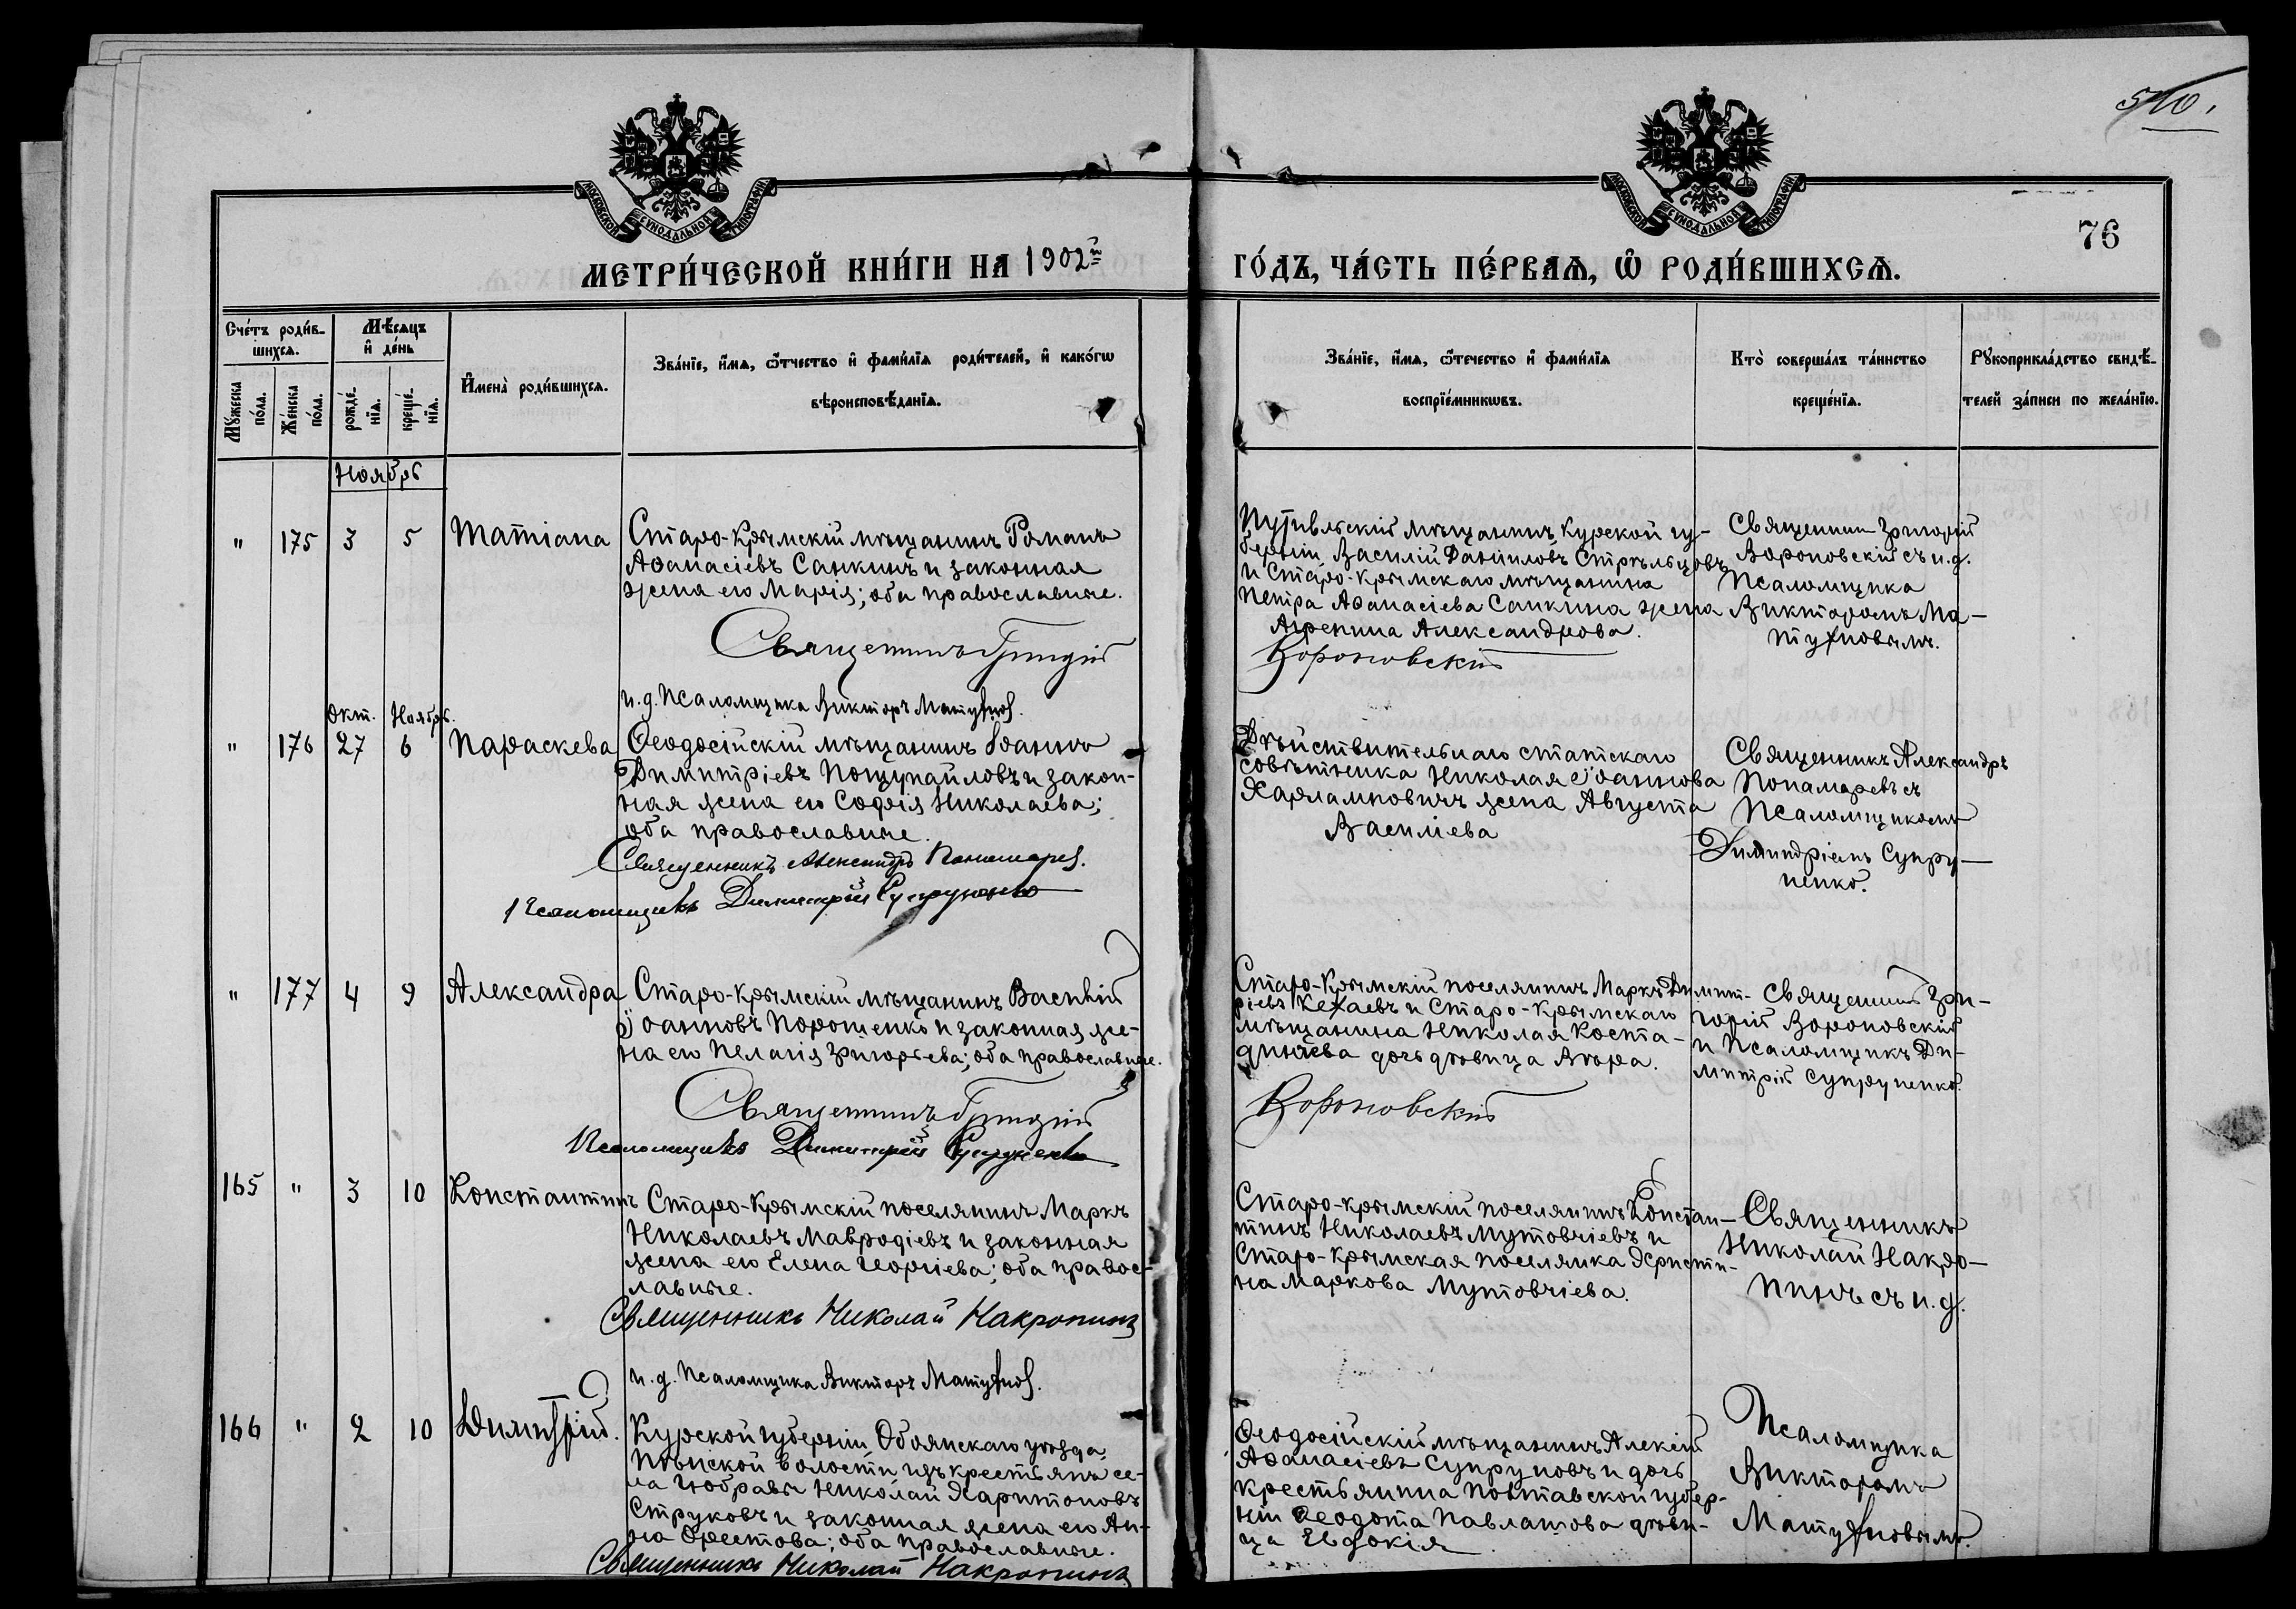 510.
76
МОСКОВСКОЙ СѴНОДАЛЬНОЙ ТИПОГРАФІИ
МОСКОВСКОЙ СѴНОДАЛЬНОЙ ТИПОГРАФІИ
МЕТРИ́ЧЕСКОЙ КНИ́ГИ НА 1902й
ГО́ДЪ, ЧА́СТЬ ПЕ́РВАѦ, Ѡ҆ РОДИ́ВШИХСѦ.
Сче́тъ роди́в-
шихсѧ.
Мꙋ́жеска по́ла.
Же́нска по́ла.
Мѣ́сѧцъ
и҆ де́нь
рожде́-
нїѧ.
креще́-
нїѧ.
И҆мена̀ роди́вшихсѧ.
Зва́нїе, и҆́мѧ, ѻ҆́тчество и҆ фами́лїѧ роди́телей, и҆ како́гѡ
вѣроисповѣ́данїѧ.
Зва́нїе, и҆́мѧ, ѻ҆́течество и҆ фами́лїѧ
воспрїе́мникѡвъ.
Кто̀ соверша́лъ та́инство
креще́нїѧ.
Рꙋкоприкла́дство свидѣ́-
телей за́писи по жела́нїю.
Ноябрь
" 175 3 5 Татіана
Старо-Крымскій мѣщанинъ Романъ
Аѳанасіевъ Санкинъ и законная
жена его Марія; оба православные.
Священникъ Григорій
и.д. Псаломщика Викторъ
Путивльскій мѣщанинъ, Курской гу-
берніи, Василій Даніиловъ Стрѣльцовъ
и Старо-Крымскаго мѣщанина
Петра Аѳанасіева Санкина жена
Агрепина Александрова.
Вороновскій
Священник Григорій
Вороновскій съ и.д.
Псаломщика
Викторомъ Ма-
Окт. Ноябрь.
" 176 27 6 Параскева
Ѳеодосійскій мѣщанинъ Іоаннъ
Димитріевъ Пощупайловъ и закон-
ная жена его Софія Николаева;
оба православные.
Священникъ Александръ Пономарев.
Псаломщикъ Димитрій Супруненко
Дѣйствительнаго статскаго
совѣтника Николая Іоаннова
Харламповичъ жена Августа
Василіева
Священникъ Александръ
Понамаревъ съ
Псаломщикомъ
Димитріемъ Супру-
ненко.
" 177 4 9 Александра
Старо-Крымскій мѣщанинъ Василій
Іоанновъ Порошенко и законная же-
на его Пелагія Григорьева; оба православные.
Священникъ Григорій
Псаломщикъ Димитрій Супруненко
Старо-Крымскій поселянинъ Маркъ Димит-
ріевъ и Старо-Крымскаго
мѣщанина Николая Коста-
дочь дѣвица Вѣра.
Вороновскій
Священникъ Гри-
горій Вороновскій
и Псаломщикъ Ди-
митрій Супруненко.
165 " 3 10 Константинъ
Старо-Крымскій поселянинъ Маркъ
Николаевъ Мавродіевъ и законная
жена его Елена Георгіева; оба правос-
лавные.
Священникъ Николай Накропинъ
и.д. Псаломщика Викторъ
Старо-Крымскій поселянинъ Констан-
тинъ Николаевъ Мутовчіевъ и
Старо-Крымская поселянка Христи-
на Маркова Мутовчіева.
Священникъ
Николай Накро-
пинъ съ и.д.
166 " 2 10 Димитрій.
Курской губерніи, Обоянскаго уѣзда,
волости изъ крестьянъ се-
ла Николай Харитоновъ
Струковъ и законная жена его Ан-
на Орестова; оба православные.
Священникъ Николай Накропинъ
Ѳеодосійскій мѣщанинъ Алексій
Аѳанасіевъ Супруновъ и дочь
крестьянина Полтавской губер-
ніи Ѳеодота дѣви-
ца Евдокія
Псаломщика
Викторомъ